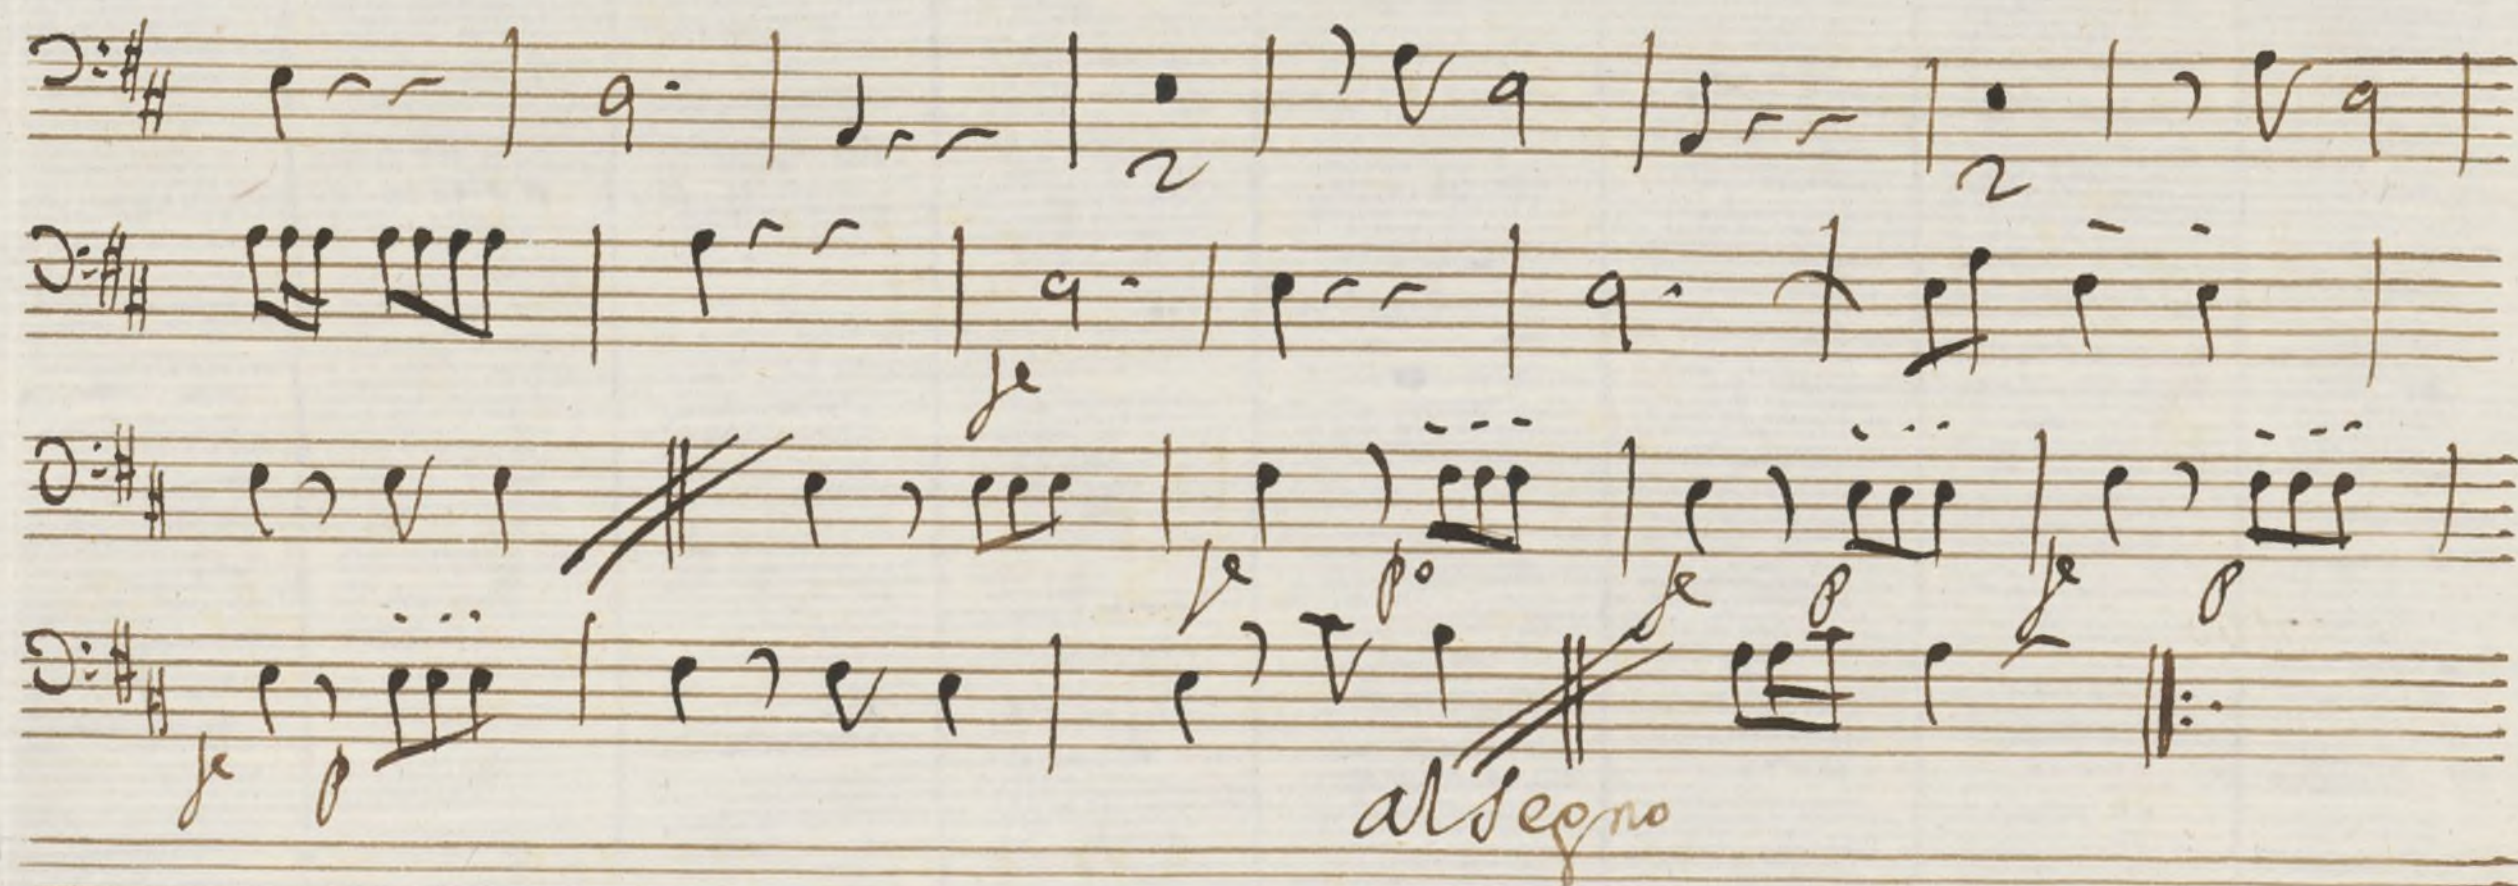 2 2
fe
fe po fe p fe p
fe p
al Segno